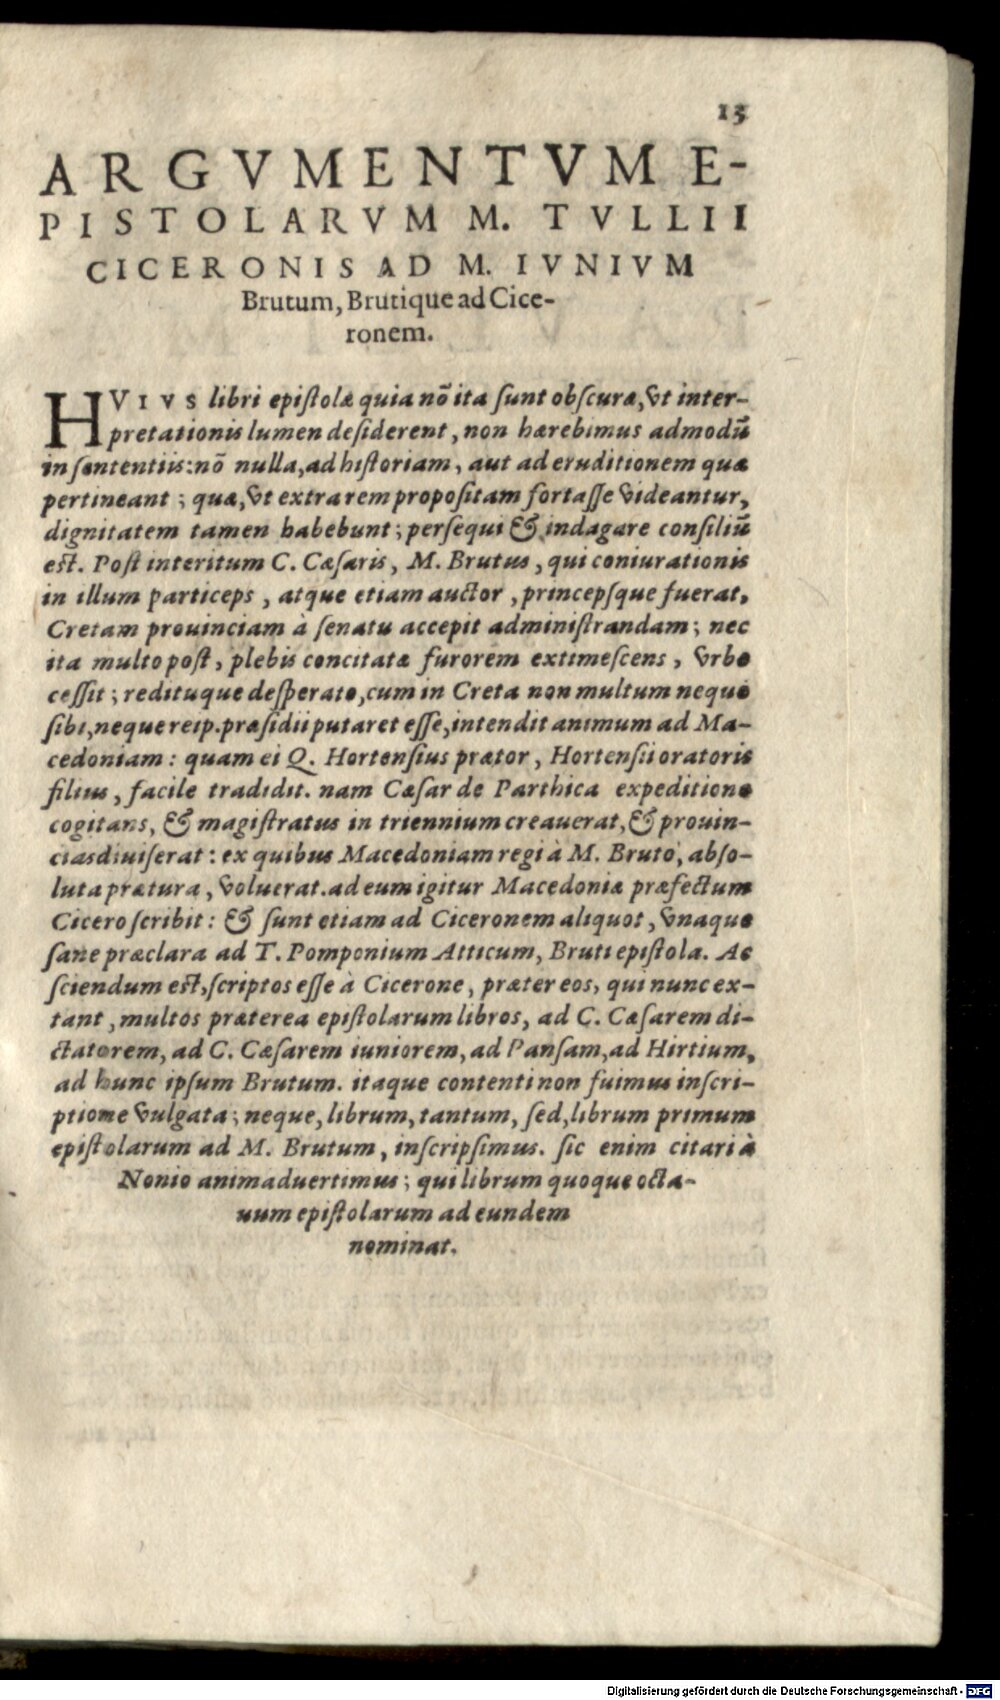 13
ARGVMENTVM E-
PISTOLARVM M. TVLLII
CICERONIS AD M. IVNIVM
Brutum, Brutique ad Cice-
ronem.
HVIVS libri epistolæ quia nõ ita sunt obscuræ, vt inter-
pretationis lumen desiderent, non hærebimus admodũ
in sententiis: nõ nulla, ad historiam, aut ad eruditionem quæ
pertineant; quæ, vt extra rem propositam fortasse videantur,
dignitatem tamen habebunt; persequi & indagare consiliũ
est. Post interitum C. Cæsaris, M. Brutus, qui coniurationis
in illum particeps, atque etiam auctor, princepsque fuerat,
Cretam prouinciam à senatu accepit administrandam; nec
ita multo post, plebis concitatæ furorem extimescens, vrbe
cessit; redituque desperato, cum in Creta non multum neque
sibi, neque reip. præsidii putaret esse, intendit animum ad Ma-
cedoniam: quam ei Q. Hortensius prætor, Hortensii oratoris
filius, facile tradidit. nam Cæsar de Parthica expeditione
cogitans, & magistratus in triennium creauerat, & prouin-
cias diuiserat: ex quibus Macedoniam regi à M. Bruto, abso-
luta prætura, voluerat. ad eum igitur Macedoniæ præfectum
Cicero scribit: & sunt etiam ad Ciceronem aliquot, vnaque
sane præclara ad T. Pomponium Atticum, Bruti epistola. Ac
sciendum est, scriptos esse à Cicerone, præter eos, qui nunc ex-
tant, multos præterea epistolarum libros, ad C. Cæsarem di-
ctatorem, ad C. Cæsarem iuniorem, ad Pansam, ad Hirtium,
ad hunc ipsum Brutum. itaque contenti non fuimus inscri-
ptione vulgata; neque, librum, tantum, sed, librum primum
epistolarum ad M. Brutum, inscripsimus. sic enim citari à
Nonio animaduertimus; qui librum quoque octa-
uum epistolarum ad eundem
nominat.
Digitalisierung gefördert durch die Deutsche Forschungsgemeinschaft - DFG